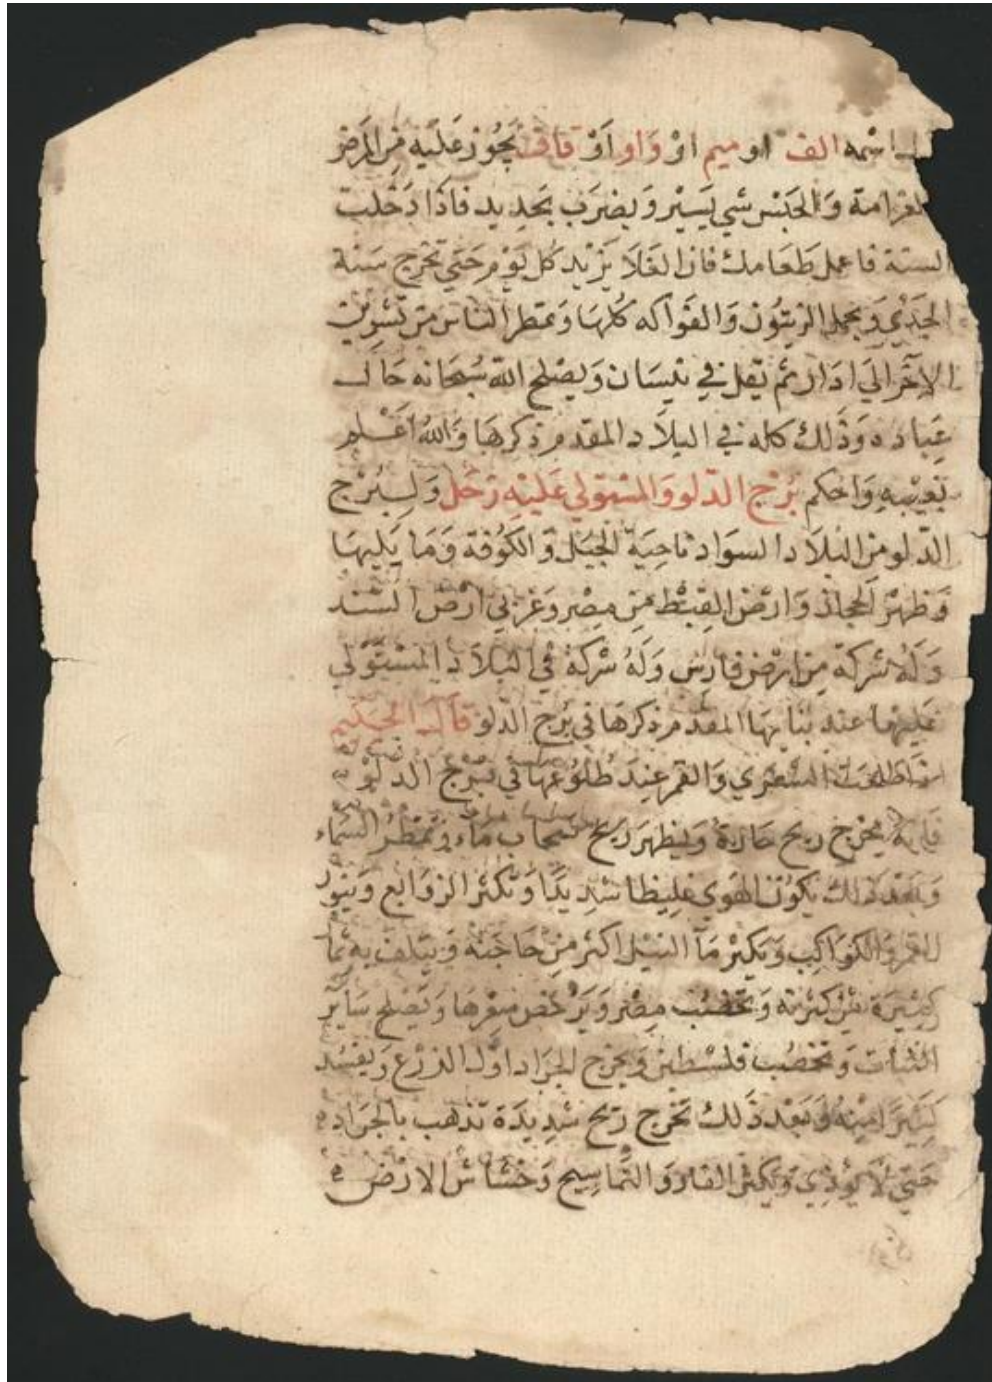 اسمه الف او ميم اوْ وَاو اَوْ قاف يجُوز عَليْه مِن المرَض
الغرامة وَالحَبْس شي يَسيْر وَيضرَب بحَدِيد فاذَا دَخلت
السنة فاعمل طَعَامك فان الغَلاَ يَزيْد كل يَوْم حَتي تخرج سَنة
الجَدْي وَيحمل الزيتوُن وَالفوَاكه كلهَا وَتمطر الناس من تشرين
الاَخَر الَي ادَار ثم تقل في نيْسَان وَيصْلح اللّه سُبحَانه حَال
عِبَاده وَذَلك كله في البلاَد المقدم ذكرهَا وَاللّهُ اعْلم
بغيْبِه وَاحكم بُرْج الدّلو وَالمسْتوْلي عَليْهِ زحَل وَلِبُرْج
الدّلو من البْلاَد السوَاد ناحيَة الجبَل وَالكوُفة وَمَا يَليهَا
وَظهرْ الحجَاز وَارْض القِبْط من مِصْر وَغرْبي ارْض السّند
وَلهُ شركة مِن ارْض فارِس وَلهُ شرْكة في البْلاَد المسْتَوْلي
عَليهَا عند بنايهَا المقدم ذكرهَا في بُرْج الدّلو قاَل الحَكيم
اذا طلعَت الشعْري وَالقمر عِند طُلوُعهَا في بُرْج الدلوْ
فانهُ يخرُج ريح حَارة وَيظهرَ ريح سَحَاب مَاء وَتمطرُ السّماء
وَبعْد ذَلك يكوُن الهَوي غليظا شدِيْدًا وَتكثر الزوَابع وَيَنوُر
القمرُ وَالكوَاكِب وَيَكثرْ مَاَ النيْل اكثر منْ حَاجَته وَيَتلف به
كثيرَة مِنْ كثرَته وَتخصُب مِصْر وَيَرْخص سعْرهَا وَيَصْلح سَاير
النبَات وَتخصُب فلسْطين وَيخرُج الجرَاد اوّل الزرْع وَيفسُد
كَثيْرًا مِنْهُ وَبَعْد ذَلك تخرج ريح شدِيدَة تذهَب بالجرَاد
حَتي لاَ يُوذِي وَيَكثرُ الفار وَالتّماسيح وَخشاش الارْض